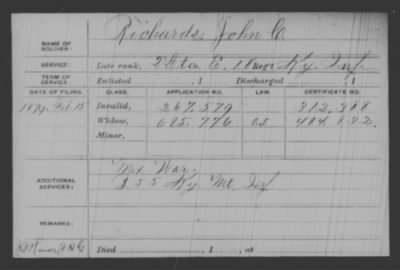 NAME OF SOLDIER: Richards, John C
SERVICE: Late rank, Co. E, 18 Reg't Ky. Inf.
TERM OF SERVICE: Enlisted , 1 Discharged , 1
DATE OF FILING. CLASS. APPLICATION NO. LAW. CERTIFICATE NO.
1879, Feb 15 Invalid, 267.579 312.388
Widow, 685.776 484.832
Minor,
ADDITIONAL SERVICES: Mex. War.
55 Ky. Mt. Inf
REMARKS:
Died , 1 , at